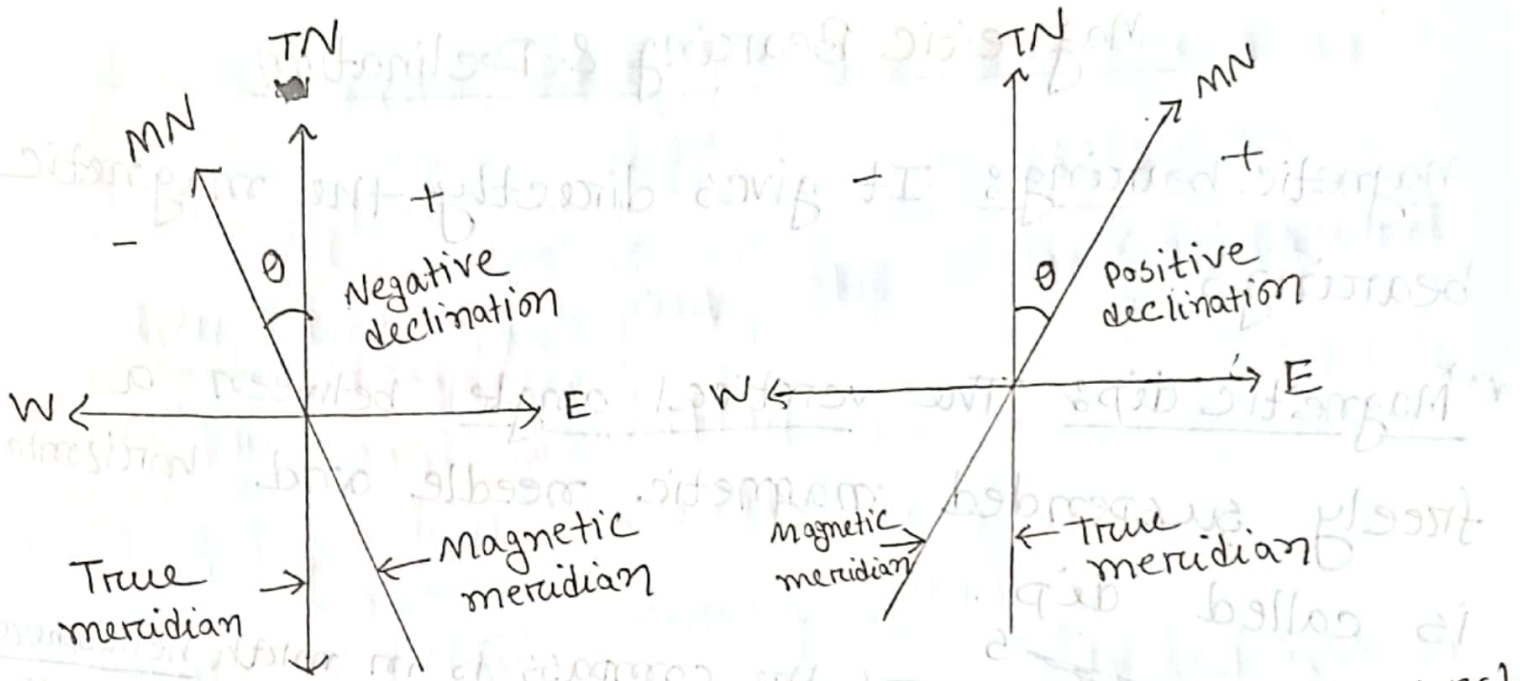 TN
MN
-
+
θ
Negative
declination
W
E
True
meridian
Magnetic
meridian
TN
MN
-
+
θ
Positive
declination
W
E
Magnetic
meridian
True
meridian